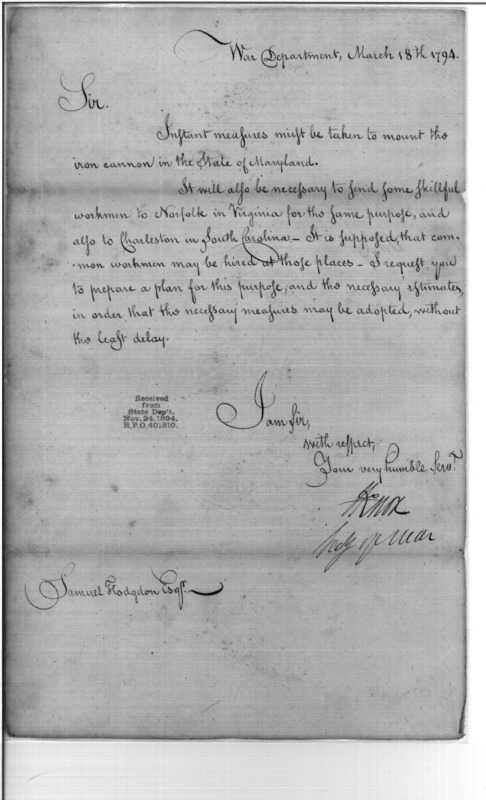 War Department, March 18th 1794.
Sir.
Instant measures must be taken to mount the
iron cannon in the State of Maryland.
It will also be necessary to send some skillful
workmen to Norfolk in Virginia for the same purpose, and
also to Charleston in South Carolina – It is supposed, that com-
-mon workmen may be hired at those places – I request you
to prepare a plan for this purpose, and the necessary estimates,
in order that the necessary measures may be adopted, without
the least delay.
Received
from
State Dep't.
Nov. 24, 1894,
R.P.O. 401310.
I am Sir,
with respect,
Your very humble Servt.
HKnox
Secy of War
Samuel Hodgdon Esqr.